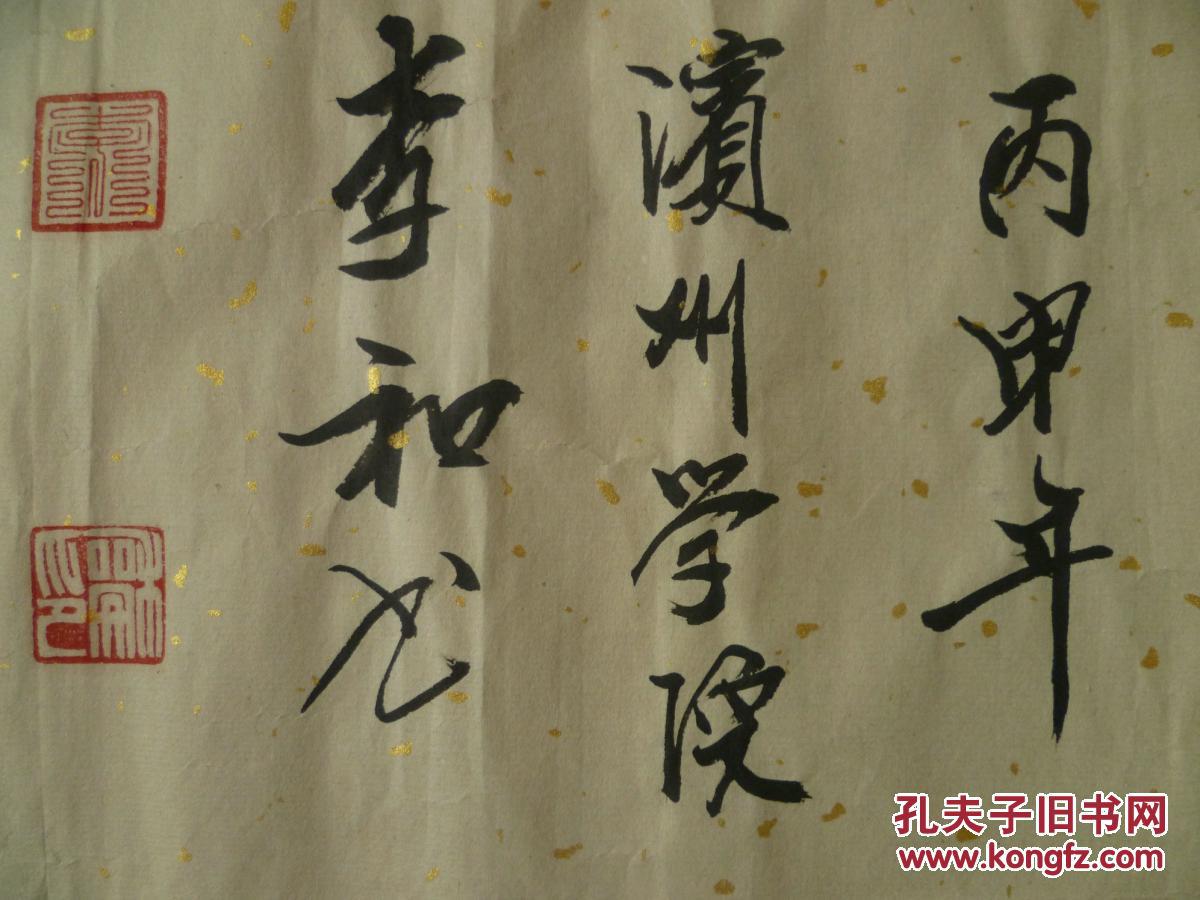 丙申年
濱州学院
李和
孔夫子旧书网
www.kongfz.com